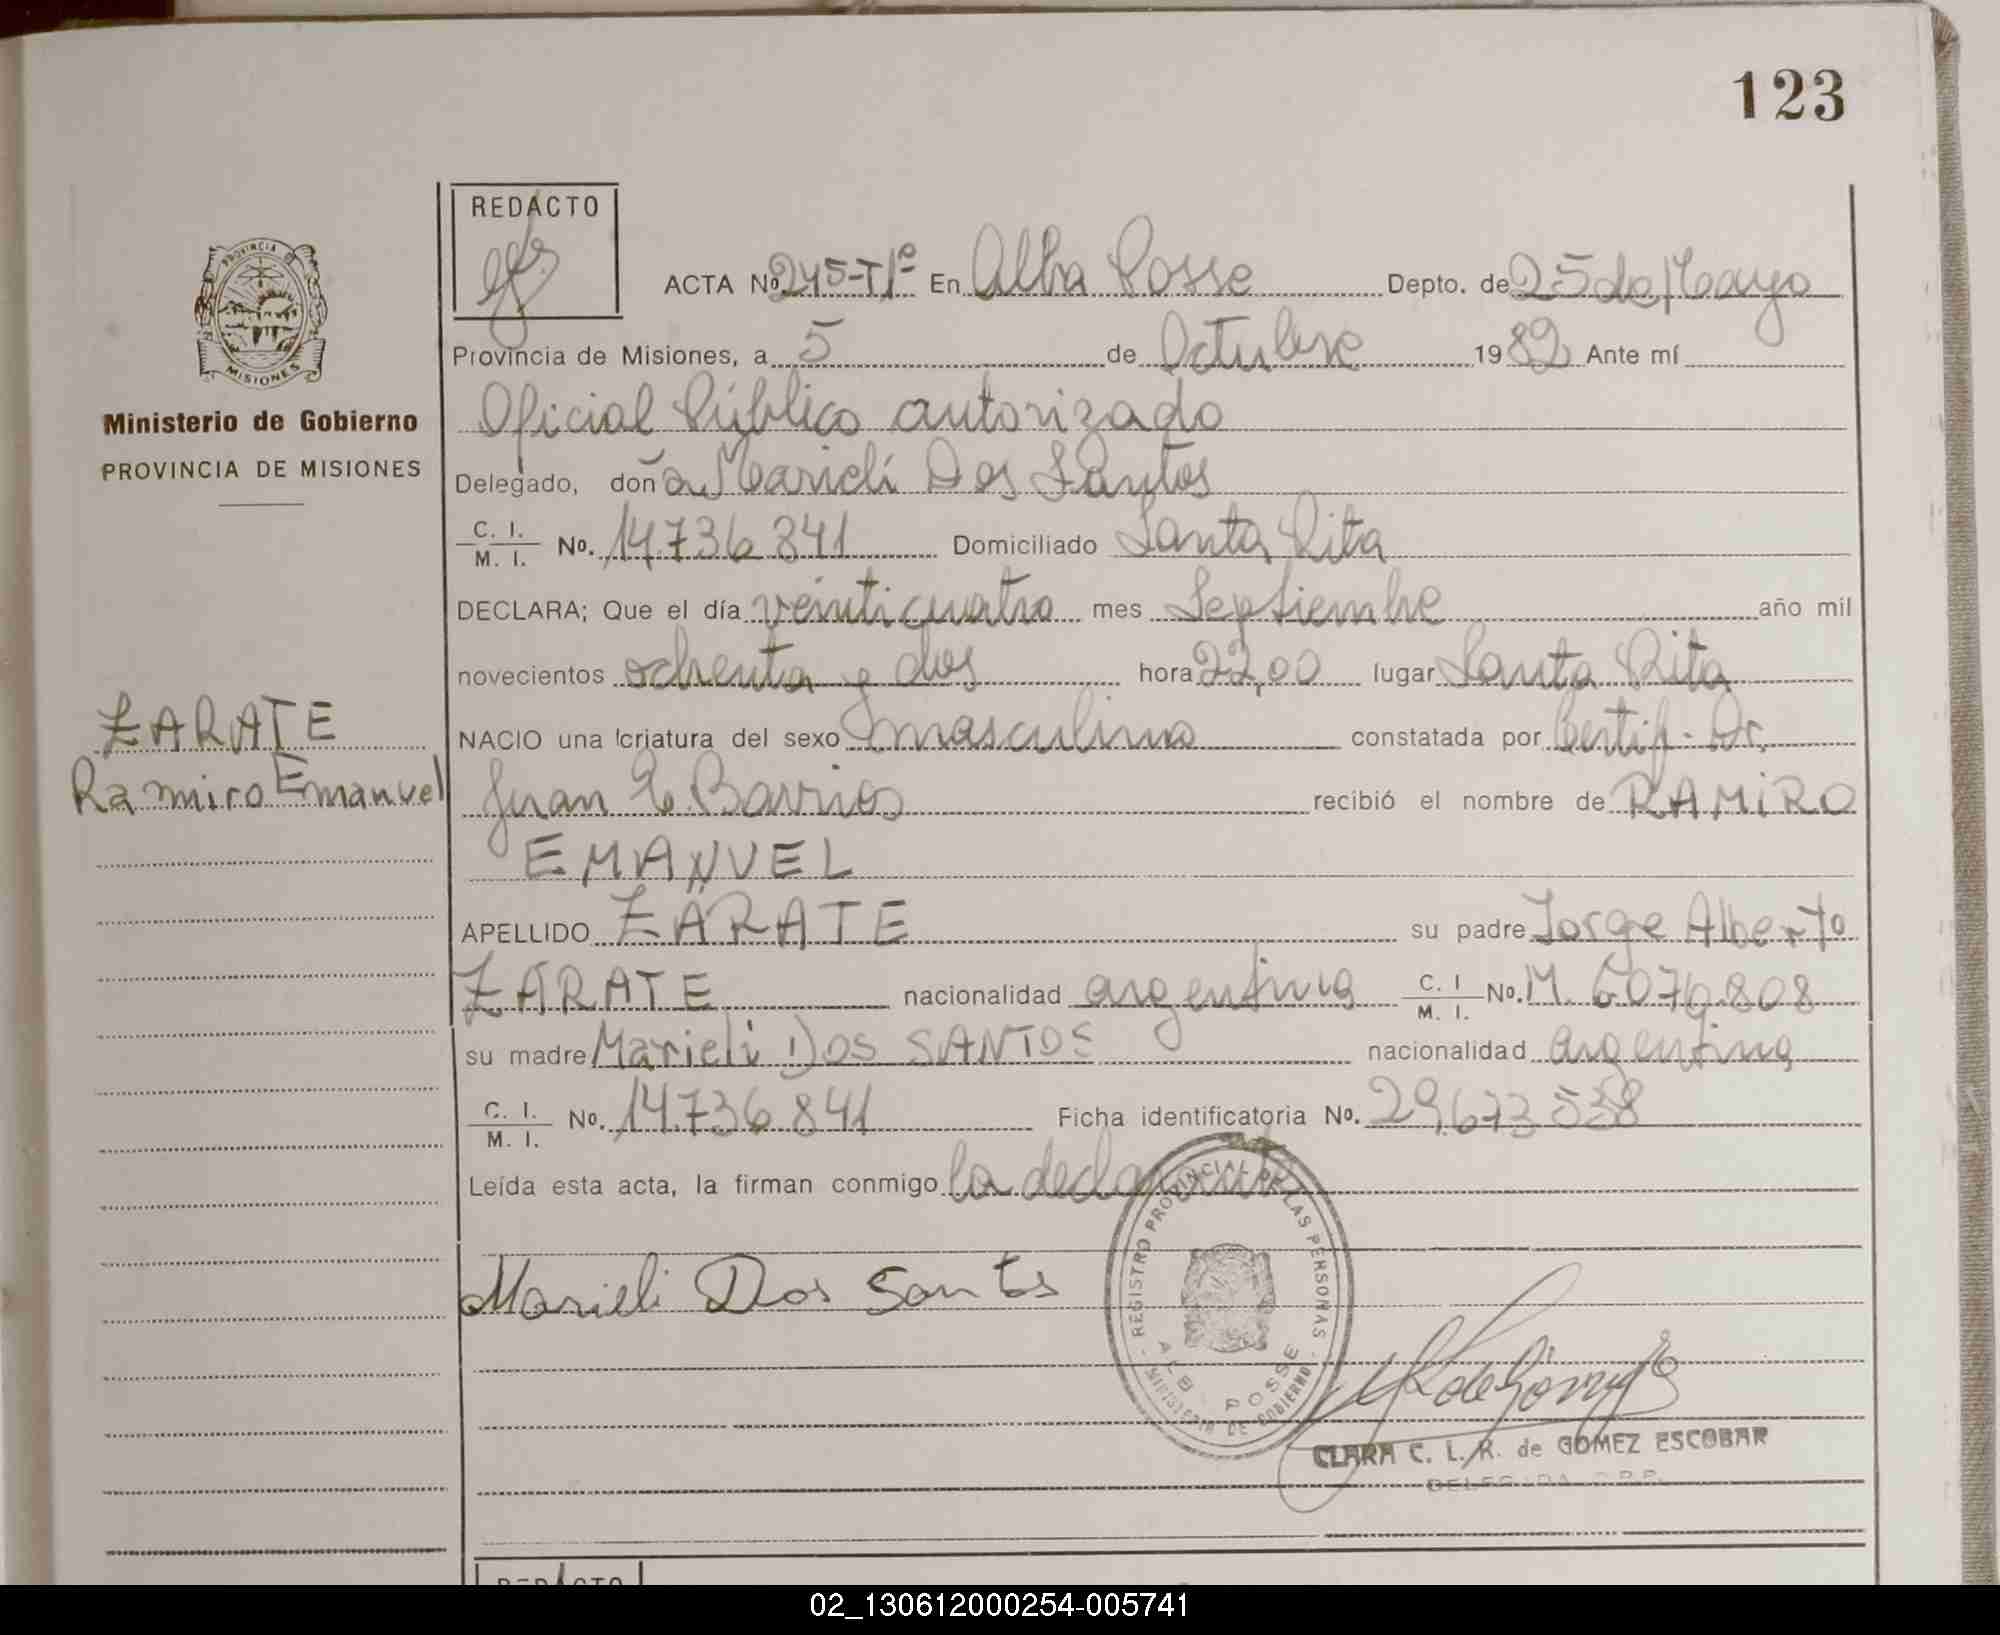 123
REDACTO
PROVINCIA D
MISIONES
ACTA Nº 245-Tº1º En Alba Posse Depto. de 25 de Mayo
Provincia de Misiones, a 5 de Octubre 1982 Ante mí
Ministerio de Gobierno
Oficial Público autorizado
PROVINCIA DE MISIONES
Delegado, doña Marieli Dos Santos
C. I.
M. I. No. 14.736.841 Domiciliado Santa Rita
DECLARA; Que el día veinticuatro mes Septiembre año mil
novecientos ochenta y dos hora 22,00 lugar Santa Rita
ZARATE
NACIO una criatura del sexo masculino constatada por Certif. Dr.
Ramiro Emanuel
Juan E. Barrios recibió el nombre de RAMIRO
EMANUEL
APELLIDO ZARATE su padre Jorge Alberto
ZARATE nacionalidad argentina C. I M. I. No. M. 6076.808
su madre Marieli DOS SANTOS nacionalidad argentina
C. I.
M. I. No. 14.736.841 Ficha identificatoria No. 29.673.538
Leída esta acta, la firman conmigo la declarante
REGISTRO PROVINCIAL DE LAS PERSONAS
ALB. POSSE
MINISTERIO DE GOBIERNO
Marieli Dos Santos
CLARA C. L. R. de GOMEZ ESCOBAR
DELEGADA
REDACTO
02_130612000254-005741